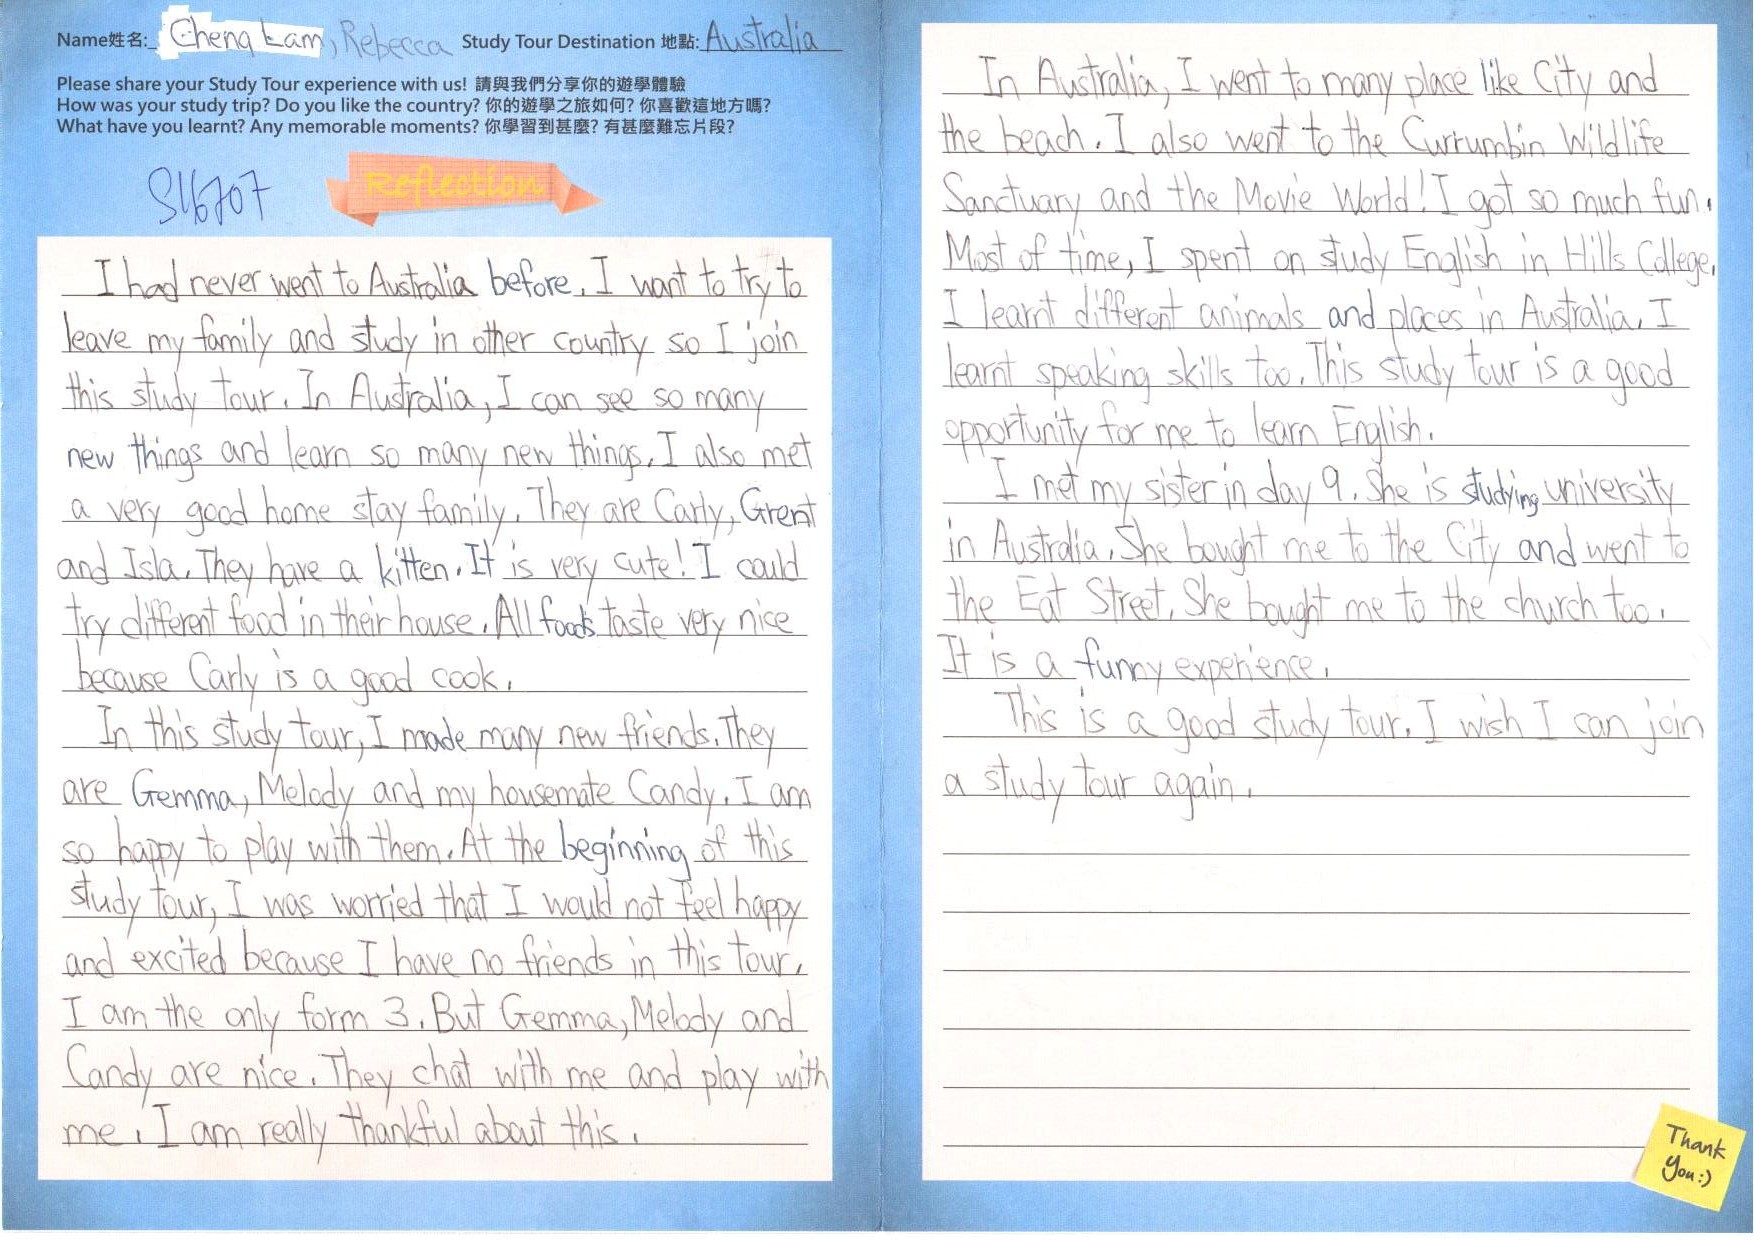 Name姓名: Cheng Lam, Rebecca Study Tour Destination 地點: Australia
Please share your Study Tour experience with us! 請與我們分享你的遊學體驗
How was your study trip? Do you like the country? 你的遊學之旅如何? 你喜歡這地方嗎?
What have you learnt? Any memorable moments? 你學習到甚麼? 有甚麼難忘片段?
S16707
Reflection
I had never went to Australia before. I want to try to
leave my family and study in other country so I join
this study tour. In Australia, I can see so many
new things and learn so many new things. I also met
a very good home stay family. They are Carly, Grent
and Isla. They have a kitten. It is very cute! I could
try different food in their house. All foods taste very nice
because Carly is a good cook.
In this study tour, I made many new friends. They
are Gemma, Melody and my housemate Candy. I am
so happy to play with them. At the beginning of this
study tour, I was worried that I would not feel happy
and excited because I have no friends in this tour.
I am the only form 3. But Gemma, Melody and
Candy are nice. They chat with me and play with
me. I am really thankful about this.
In Australia, I went to many place like City and
the beach. I also went to the Currumbin Wildlife
Sanctuary and the Movie World! I got so much fun.
Most of time, I spent on study English in Hills College.
I learnt different animals and places in Australia. I
learnt speaking skills too. This study tour is a good
opportunity for me to learn English.
I met my sister in day 9. She is studying university
in Australia. She bought me to the City and went to
the Eat Street. She bought me to the church too.
It is a funny experience.
This is a good study tour. I wish I can join
a study tour again.
Thank
You:)